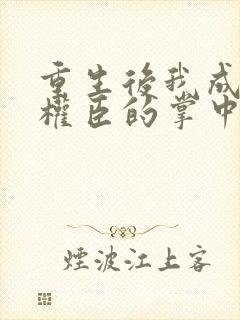 重生後我成
權臣的掌中
煙波江上客